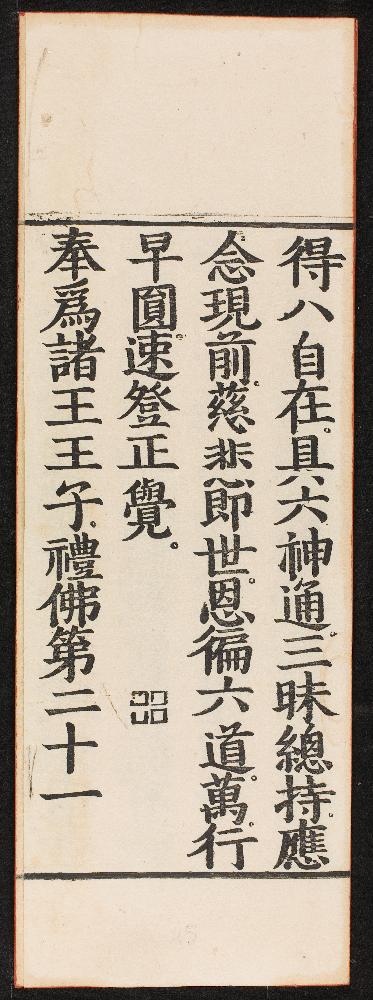 得八自在。具六神通。三昧總持。應
念現前。慈悲即世。恩徧六道。萬行
早圓。速登正覺。
奉爲諸王王子禮佛第二十一